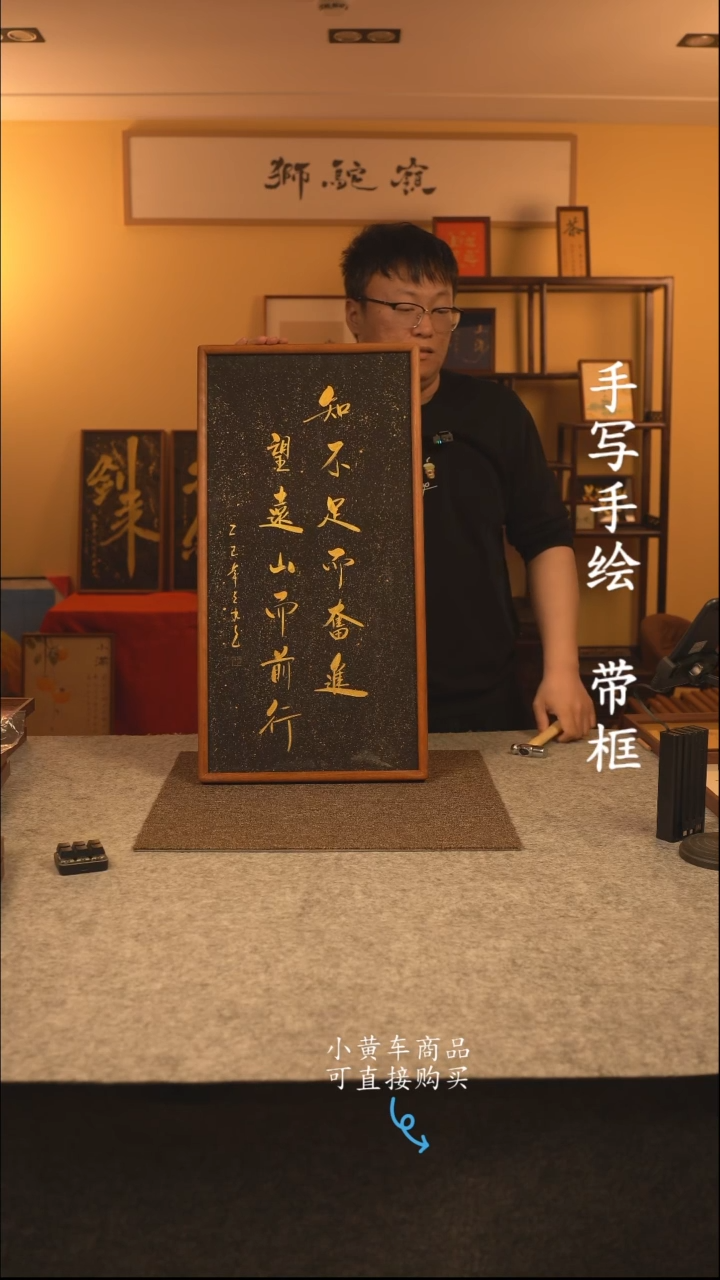 獅駝嶺
茶
知不足而奮進
望遠山而前行
乙巳年
劍来
手写手绘 带框
小黄车商品
可直接购买